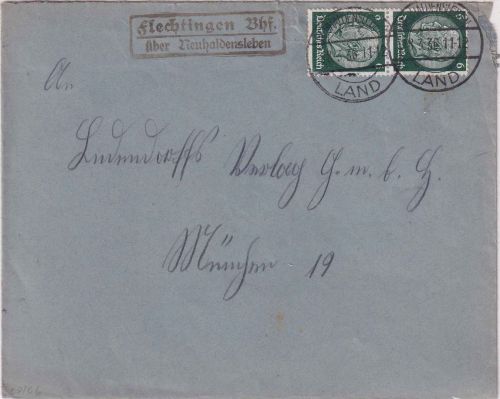 Flechtingen Bhf.
über Neuhaldensleben
Deutsches Reich
6
Deutsches Reich
6
LAND
LAND
An
Ludendorffs Verlag G. m. b. H.
München 19